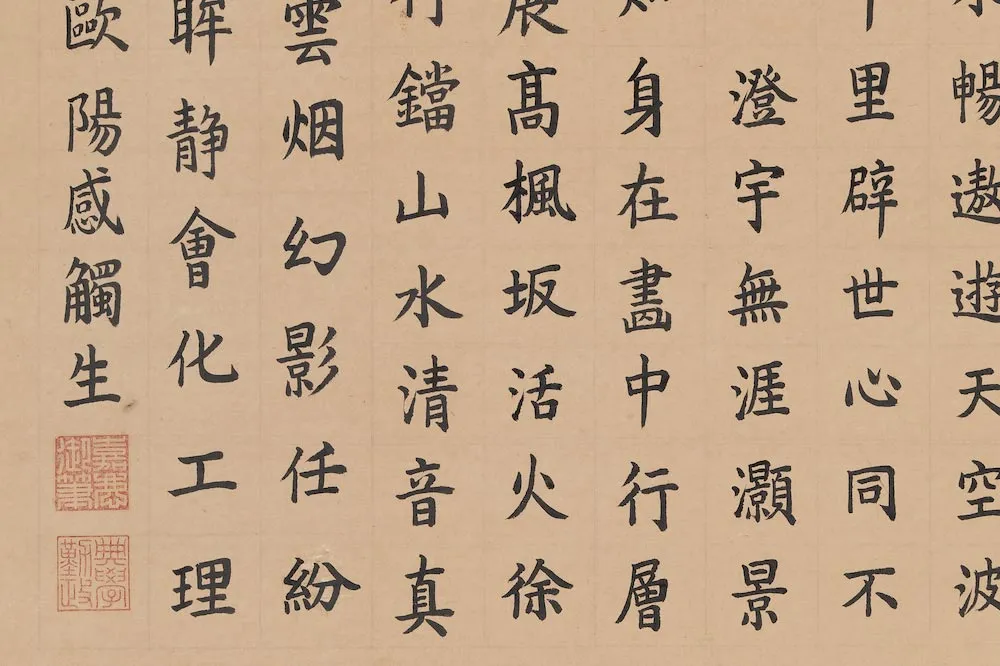 暢遨遊天空波
里辟世心同不
澄宇無涯灝景
身在畫中行層
展髙楓坂活火徐
鐺山水清音真
雲烟幻影任紛
眸静會化工理
歐陽感觸生
嘉慶御筆
典學勤政